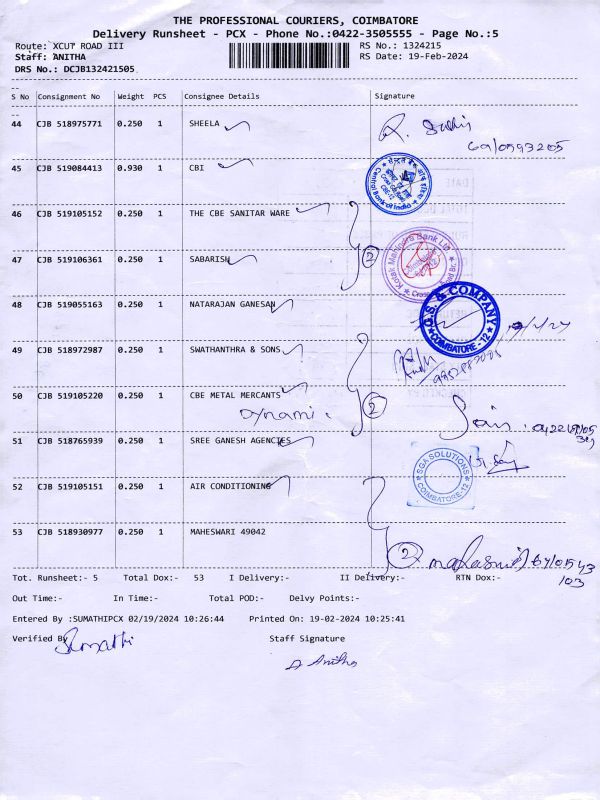 THE PROFESSIONAL COURIERS, COIMBATORE
Delivery Runsheet - PCX - Phone No.:0422-3505555 - Page No.:5
Route: XCUT ROAD III
RS No.: 1324215
Staff: ANITHA
RS Date: 19-Feb-2024
DRS No.: DCJB132421505
S No Consignment No Weight PCS Consignee Details Signature
44 CJB 518975771 0.250 1 SHEELA
45 CJB 519084413 0.930 1 CBI
Central Bank of India
46 CJB 519105152 0.250 1 THE CBE SANITAR WARE
2
Kotak Mahindra Bank Ltd.
47 CJB 519106361 0.250 1 SABARISH
48 CJB 519055163 0.250 1 NATARAJAN GANESAN
G.S. & COMPANY
COIMBATORE - 12
49 CJB 518972987 0.250 1 SWATHANTHRA & SONS
50 CJB 519105220 0.250 1 CBE METAL MERCANTS
2
51 CJB 518765939 0.250 1 SREE GANESH AGENCIES
SGA SOLUTIONS
COIMBATORE-12
52 CJB 519105151 0.250 1 AIR CONDITIONING
53 CJB 518930977 0.250 1 MAHESWARI 49042
2
Tot. Runsheet:- 5 Total Dox:- 53 I Delivery:- II Delivery:- RTN Dox:-
Out Time:- In Time:- Total POD:- Delvy Points:-
Entered By :SUMATHIPCX 02/19/2024 10:26:44 Printed On: 19-02-2024 10:25:41
Verified By
Staff Signature
Sumathi
A Anitha